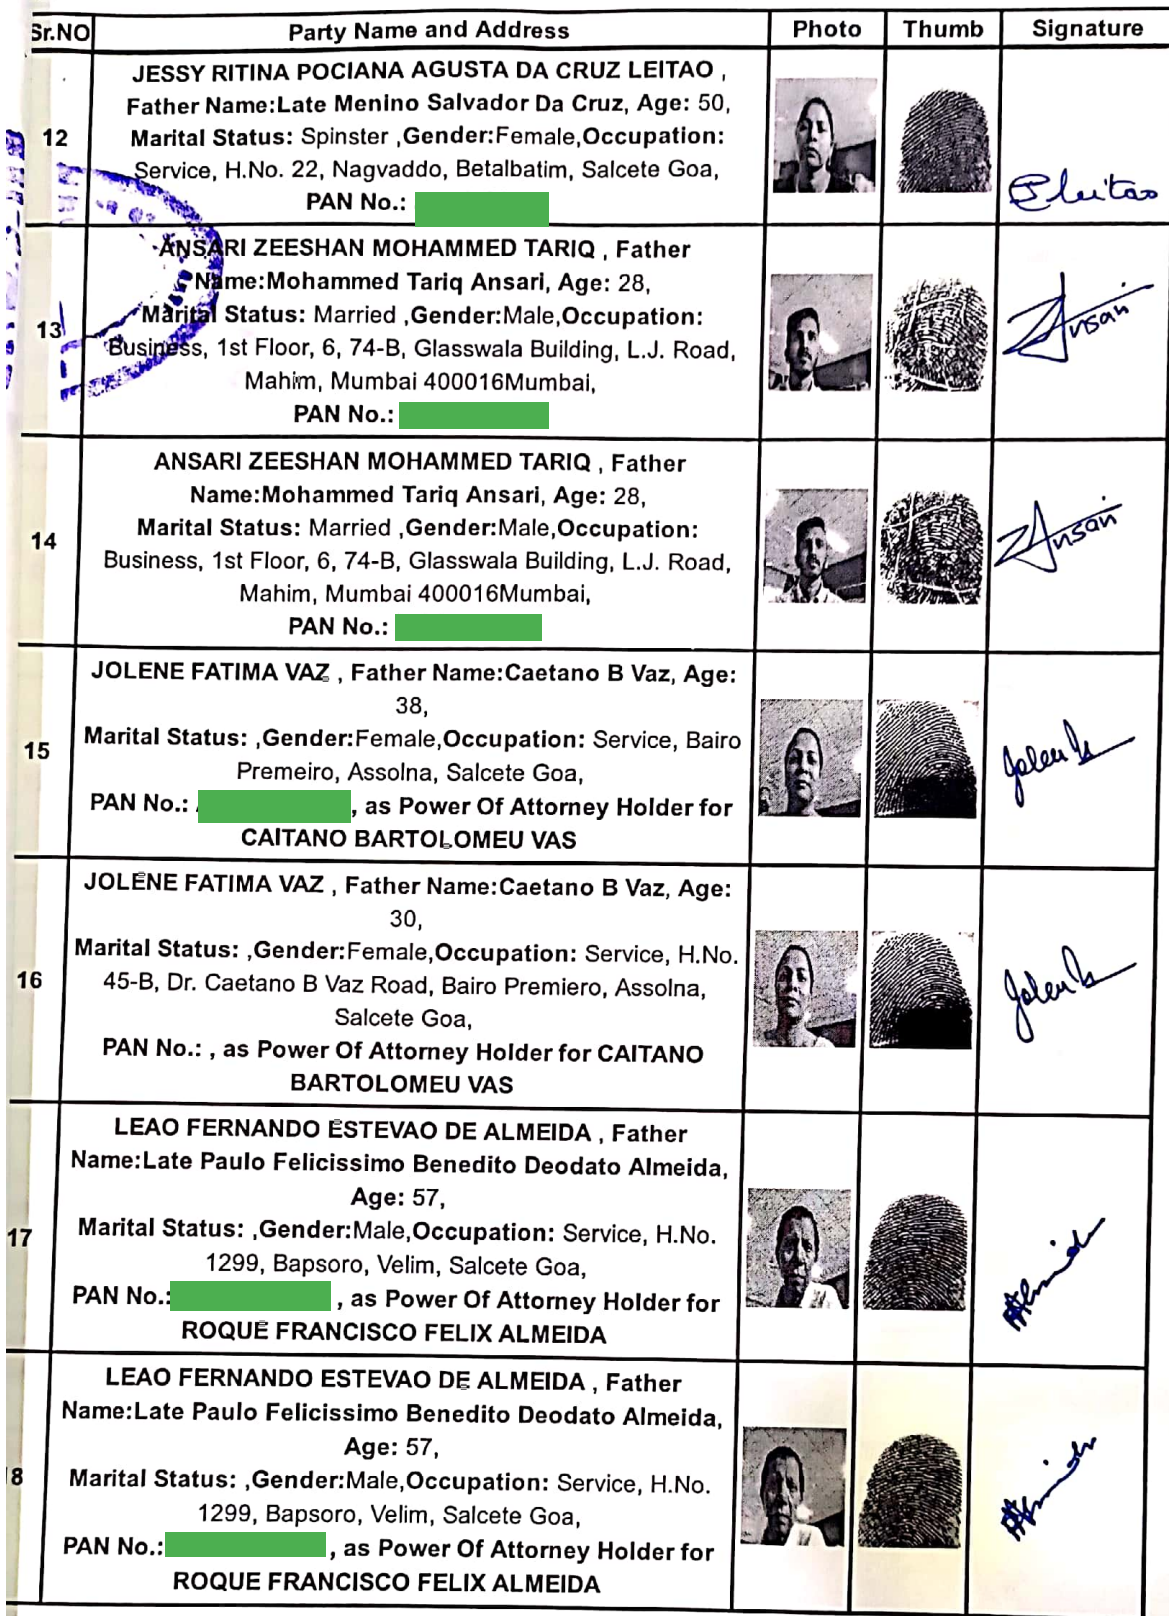 Sr.NO Party Name and Address Photo Thumb Signature
12
JESSY RITINA POCIANA AGUSTA DA CRUZ LEITAO ,
Father Name:Late Menino Salvador Da Cruz, Age: 50,
Marital Status: Spinster ,Gender:Female,Occupation:
Service, H.No. 22, Nagvaddo, Betalbatim, Salcete Goa,
PAN No.:
Leitao
13
ANSARI ZEESHAN MOHAMMED TARIQ , Father
Name:Mohammed Tariq Ansari, Age: 28,
Marital Status: Married ,Gender:Male,Occupation:
Business, 1st Floor, 6, 74-B, Glasswala Building, L.J. Road,
Mahim, Mumbai 400016Mumbai,
PAN No.:
ZAnsari
14
ANSARI ZEESHAN MOHAMMED TARIQ , Father
Name:Mohammed Tariq Ansari, Age: 28,
Marital Status: Married ,Gender:Male,Occupation:
Business, 1st Floor, 6, 74-B, Glasswala Building, L.J. Road,
Mahim, Mumbai 400016Mumbai,
PAN No.:
ZAnsari
15
JOLENE FATIMA VAZ , Father Name:Caetano B Vaz, Age:
38,
Marital Status: ,Gender:Female,Occupation: Service, Bairo
Premeiro, Assolna, Salcete Goa,
PAN No.: , as Power Of Attorney Holder for
CAITANO BARTOLOMEU VAS
16
JOLENE FATIMA VAZ , Father Name:Caetano B Vaz, Age:
30,
Marital Status: ,Gender:Female,Occupation: Service, H.No.
45-B, Dr. Caetano B Vaz Road, Bairo Premiero, Assolna,
Salcete Goa,
PAN No.: , as Power Of Attorney Holder for CAITANO
BARTOLOMEU VAS
17
LEAO FERNANDO ESTEVAO DE ALMEIDA , Father
Name:Late Paulo Felicissimo Benedito Deodato Almeida,
Age: 57,
Marital Status: ,Gender:Male,Occupation: Service, H.No.
1299, Bapsoro, Velim, Salcete Goa,
PAN No.: , as Power Of Attorney Holder for
ROQUE FRANCISCO FELIX ALMEIDA
8
LEAO FERNANDO ESTEVAO DE ALMEIDA , Father
Name:Late Paulo Felicissimo Benedito Deodato Almeida,
Age: 57,
Marital Status: ,Gender:Male,Occupation: Service, H.No.
1299, Bapsoro, Velim, Salcete Goa,
PAN No.: , as Power Of Attorney Holder for
ROQUE FRANCISCO FELIX ALMEIDA